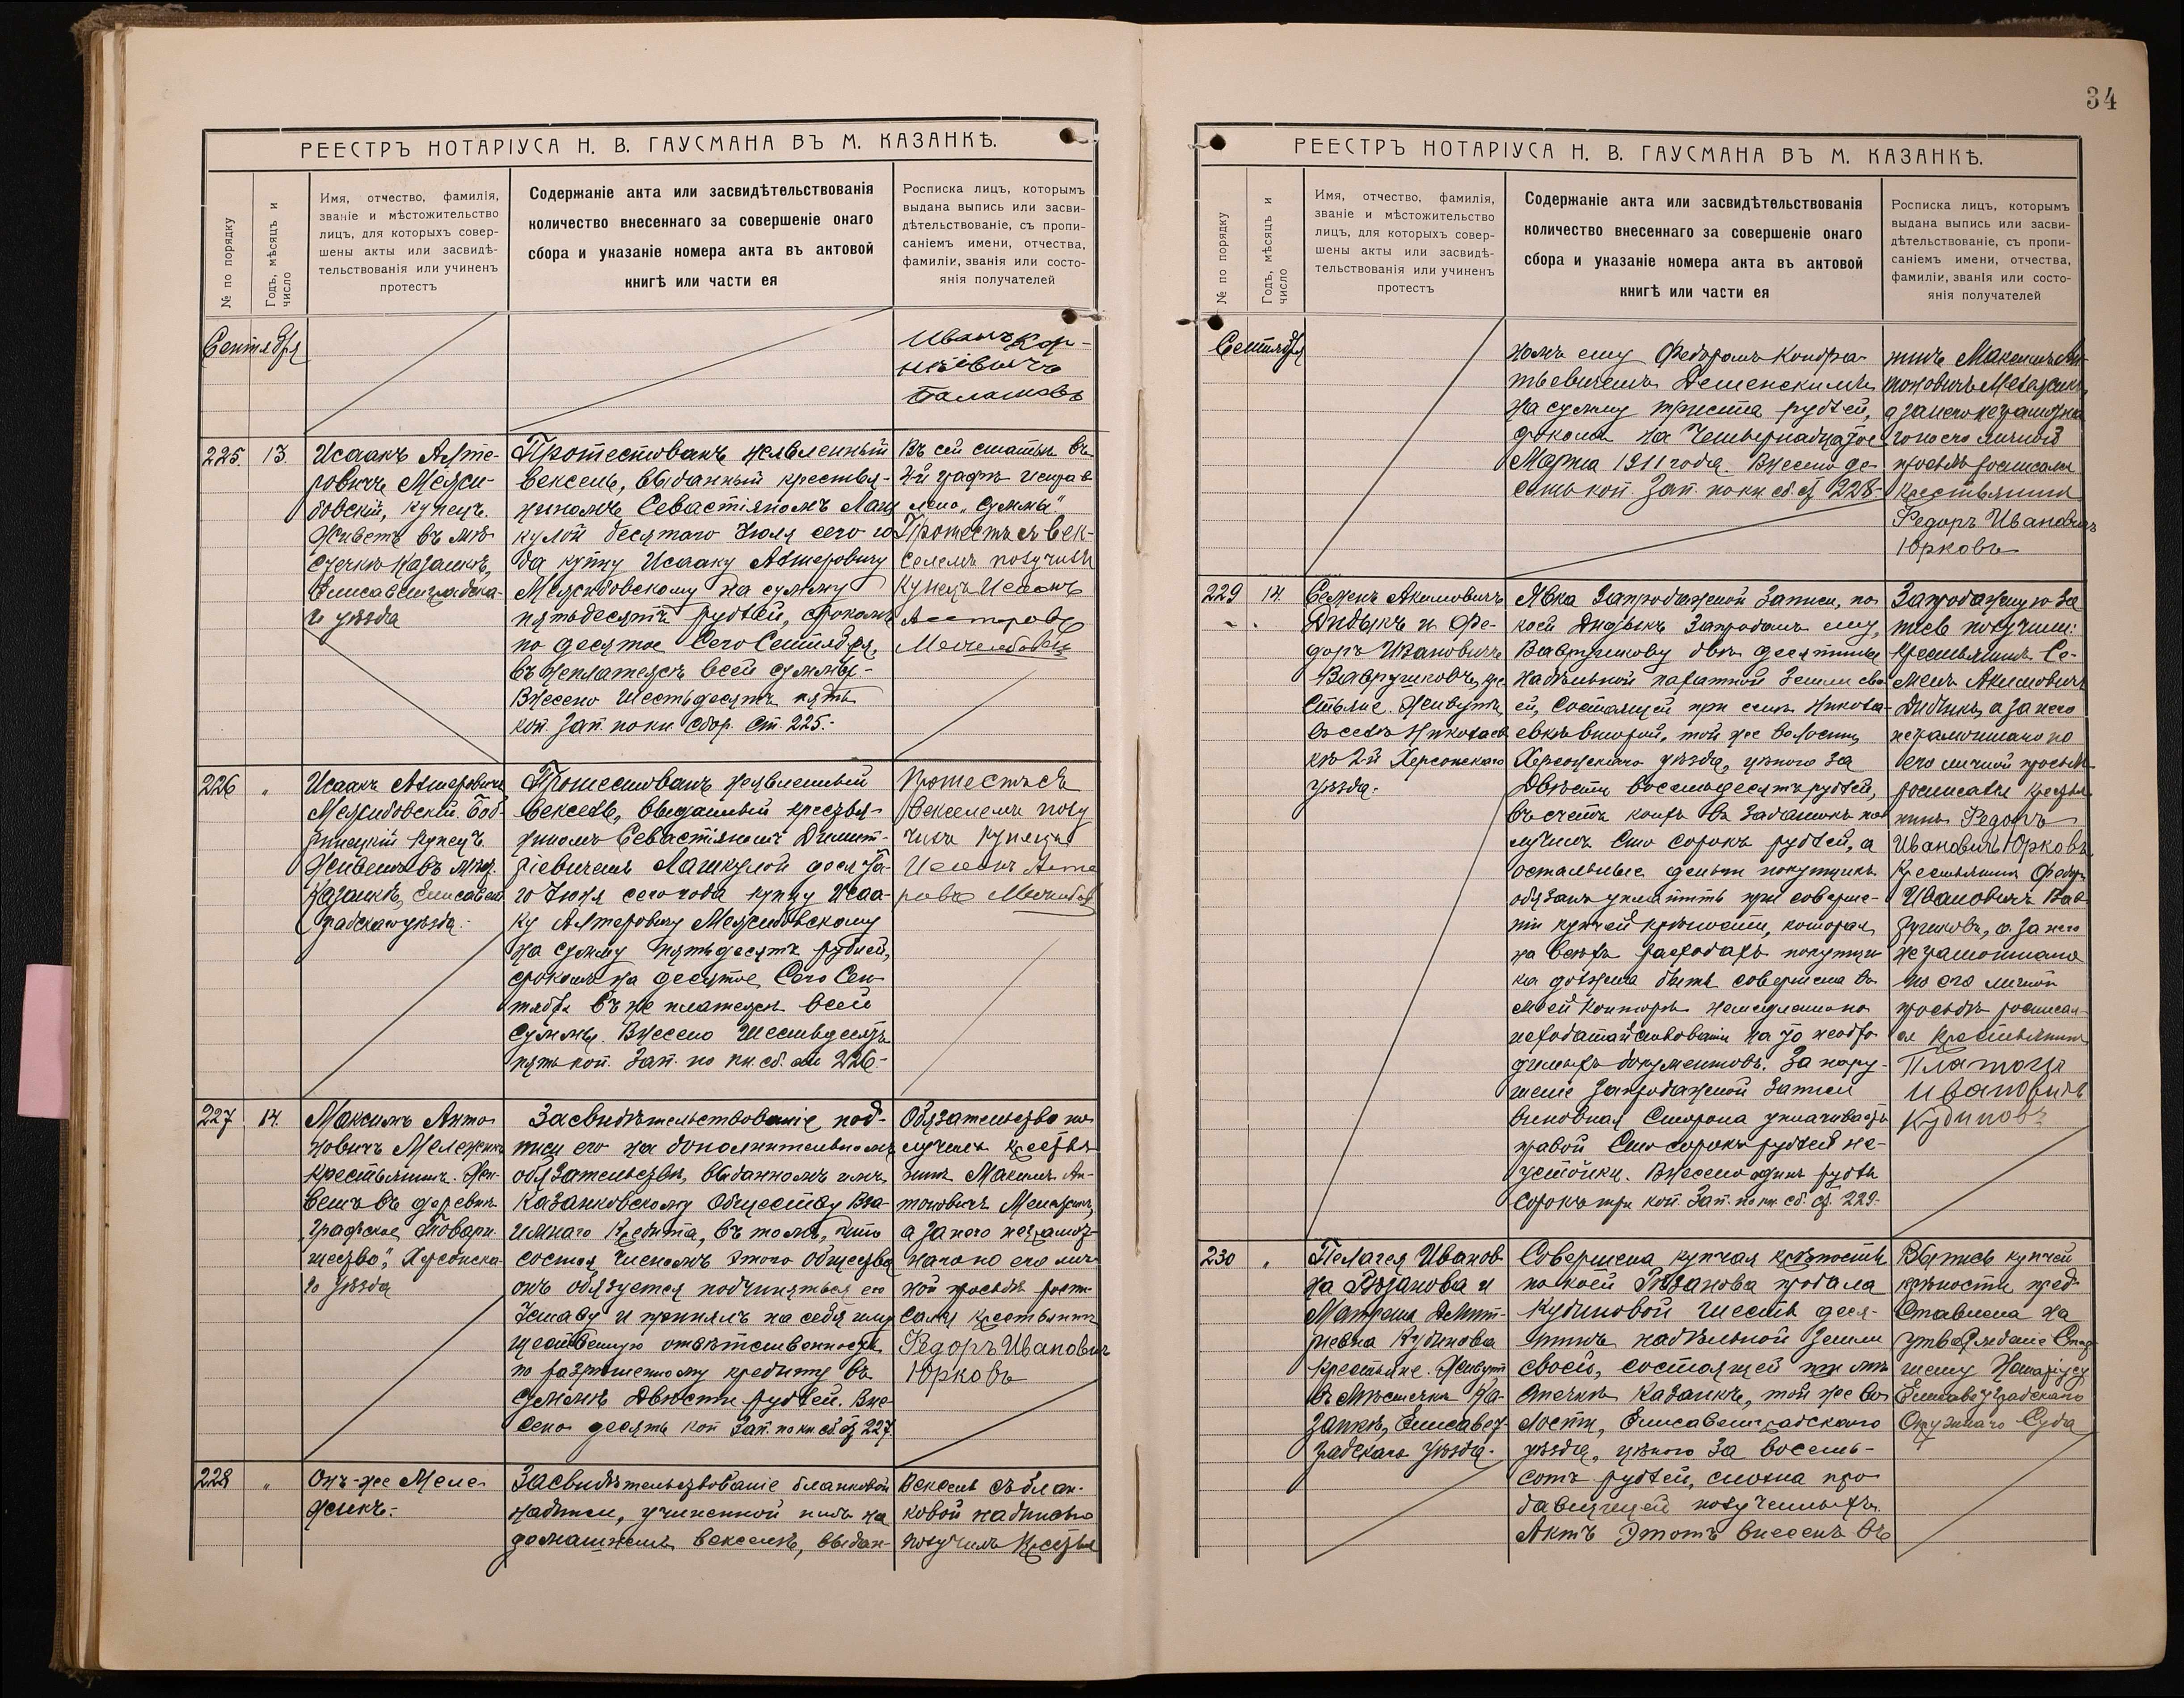 РЕЕСТРЪ НОТАРІУСА Н. В. ГАУСМАНА ВЪ М. КАЗАНКѢ.
№ по порядку
Годъ, мѣсяцъ и
число
Имя, отчество, фамилія,
званіе и мѣстожительство
лицъ, для которыхъ совер-
шены акты или засвидѣ-
тельствованія или учиненъ
протестъ
Содержаніе акта или засвидѣтельствованія
количество внесеннаго за совершеніе онаго
сбора и указаніе номера акта въ актовой
книгѣ или части ея
Росписка лицъ, которымъ
выдана выпись или засви-
дѣтельствованіе, съ пропи-
саніемъ имени, отчества,
фамиліи, званія или состо-
янія получателей
Сентября
Иванъ Кор-
нѣевичъ
Балашовъ
225.
13.
Исаакъ Алте-
ровичъ Межи-
бовскій, купецъ.
Живетъ въ мѣ-
стечкѣ Казанкѣ,
Елисаветградска-
го уѣзда
Протестованъ неявленный
вексель, выданный крестья-
ниномъ Севастіяномъ Лаш
кулой десятаго Іюля сего го
да купцу Исааку Алтеровичу
Межибовскому на сумму
пятьдесятъ рублей, срокомъ
по десятое Сего Сентября,
въ неплатежѣ всей суммы.-
Внесено шестьдесятъ пять
коп. Зап. по кн. сбор. ст. 225.-
Въ сей статьѣ въ
2-й графѣ исправ
лено „сумма".
Протестъ съ век-
селемъ получилъ
Купецъ
226
„
Исаакъ Алтеровичъ
Межибовскій. Боб-
ринецкій купецъ.
Живетъ въ мѣст.
Казанкѣ, Елисавет
градскаго уѣзда.-
Протестованъ неявленный
вексель, выданный крестья-
ниномъ Севастіяномъ Димит-
ріевичемъ Лашкулой десята-
го Іюля сего года купцу Исаа-
ку Алтеровичу Межибовскому
на сумму пятьдесятъ рублей,
срокомъ на десятое Сего Сен
тября въ не платежѣ всей
суммы. Внесено шестьдесятъ
пять коп. Зап. по кн. сб. ст. 226.-
Протестъ съ
векселемъ полу
чилъ купецъ
227
14.
Максимъ Анто
новичъ Мележикъ
крестьянинъ. Жи-
ветъ въ деревнѣ
„Графское Товари-
щество", Херсонска-
го уѣзда
Засвидѣтельствованіе под-
писи его на дополнительномъ
обязательствѣ, выданномъ имъ
Казанковскому Обществу Вза-
имнаго Кредита, въ томъ, что
состоя членомъ этого Общества
онъ обязуется подчиняться его
Уставу и принялъ на себя иму
щественную отвѣтственность
по разрѣшенному кредиту въ
суммѣ двѣсти рублей. Вне
сено десять коп Зап. по кн. сб. ст. 227.
Обязательство по
лучилъ крестья
нинъ Максимъ Ан-
тоновичъ Мележикъ,
а за него неграмот-
наго по его лич
ной просьбѣ роспи-
сался крестьянинъ
Федоръ Ивановичъ
Юрковъ
228
„
Онъ-же Меле-
жикъ.-
Засвидѣтельствованіе бланковой
надписи, учиненной имъ на
домашнемъ векселѣ, выдан-
Вексель съ блан-
ковой надписью
получилъ Крестья
34
РЕЕСТРЪ НОТАРІУСА Н. В. ГАУСМАНА ВЪ М. КАЗАНКѢ.
№ по порядку
Годъ, мѣсяцъ и
число
Имя, отчество, фамилія,
званіе и мѣстожительство
лицъ, для которыхъ совер-
шены акты или засвидѣ-
тельствованія или учиненъ
протестъ
Содержаніе акта или засвидѣтельствованія
количество внесеннаго за совершеніе онаго
сбора и указаніе номера акта въ актовой
книгѣ или части ея
Росписка лицъ, которымъ
выдана выпись или засви-
дѣтельствованіе, съ пропи-
саніемъ имени, отчества,
фамиліи, званія или состо-
янія получателей
Сентября
номъ ему Федоромъ Кондра-
тьевичемъ Деменскимъ
на сумму триста рублей,
срокомъ на Четырнадцатое
Марта 1911 года. Внесено де-
сять коп. Зап. по кн. сб. ст. 228.-
нинъ Максимъ Ан-
тоновичъ Мележикъ,
а за него неграмотна
го по его личной
просьбѣ росписался
Крестьянинъ
Федоръ Ивановичъ
Юрковъ
229
14.
Семенъ Акимовичъ
Дидыкъ и Фе-
доръ Ивановичъ
Вавгучковъ, кре
стьяне. Живутъ
въ селѣ Николаев
кѣ 2-й Херсонскаго
уѣзда.-
Явка Запродажной Записи, по
коей Дидыкъ Запродалъ ему,
двѣ десятины
надѣльной пахатной Земли сво
ей, Состоящей при селѣ Никола-
евкѣ второй, той же волости,
Херсонскаго уѣзда, цѣною за
Двѣсти восемьдесятъ рублей,
въ счетъ коихъ въ задатокъ по
лучилъ Сто сорокъ рублей, а
остальныя деньги покупщикъ
обязанъ уплатить при соверше-
ніи купчей крѣпости, которая
на всѣхъ расходахъ покупщи
ка должна быть совершена въ
моей Конторѣ немедленно по
исходатайствованіи на то необхо
димыхъ документовъ. За нару-
шеніе Запродажной Записи
виновная Сторона уплачиваетъ
правой Сто сорокъ рублей не-
устойки. Внесено одинъ рубль
сорокъ три коп. Зап. по кн. сб. ст. 229.-
Запродажную За
пись получили:
Крестьянинъ Се-
менъ Акимовичъ
Дидыкъ, а за него
неграмотнаго по
его личной просьбѣ
росписался крестья
нинъ Федоръ
Ивановичъ Юрковъ,
Крестьянинъ Федоръ
Ивановичъ
а за него
неграмотнаго
по его личной
просьбѣ росписал-
ся Крестьянинъ
Платонъ
Ивановичъ
Кудиновъ
230
„
Пелагея Иванов-
на Рязанова и
Матрена Дмит-
ріевна Кудинова
крестьяне. Живутъ
въ Мѣстечкѣ Ка-
занкѣ, Елисавет
градскаго уѣзда.-
Совершена купчая крѣпость
по коей Рязанова продала
Кудиновой шесть деся-
тинъ надѣльной Земли
своей, состоящей при мѣ
стечкѣ Казанкѣ, той же во
лости, Елисаветградскаго
уѣзда, цѣною за восемь-
сотъ рублей, сполна про
давщицей полученныхъ.
Актъ Этотъ внесенъ въ
Выпись купчей
крѣпости пред-
ставлена на
утвержденіе Стар
шему Нотаріусу
Елисаветградскаго
Окружнаго Суда